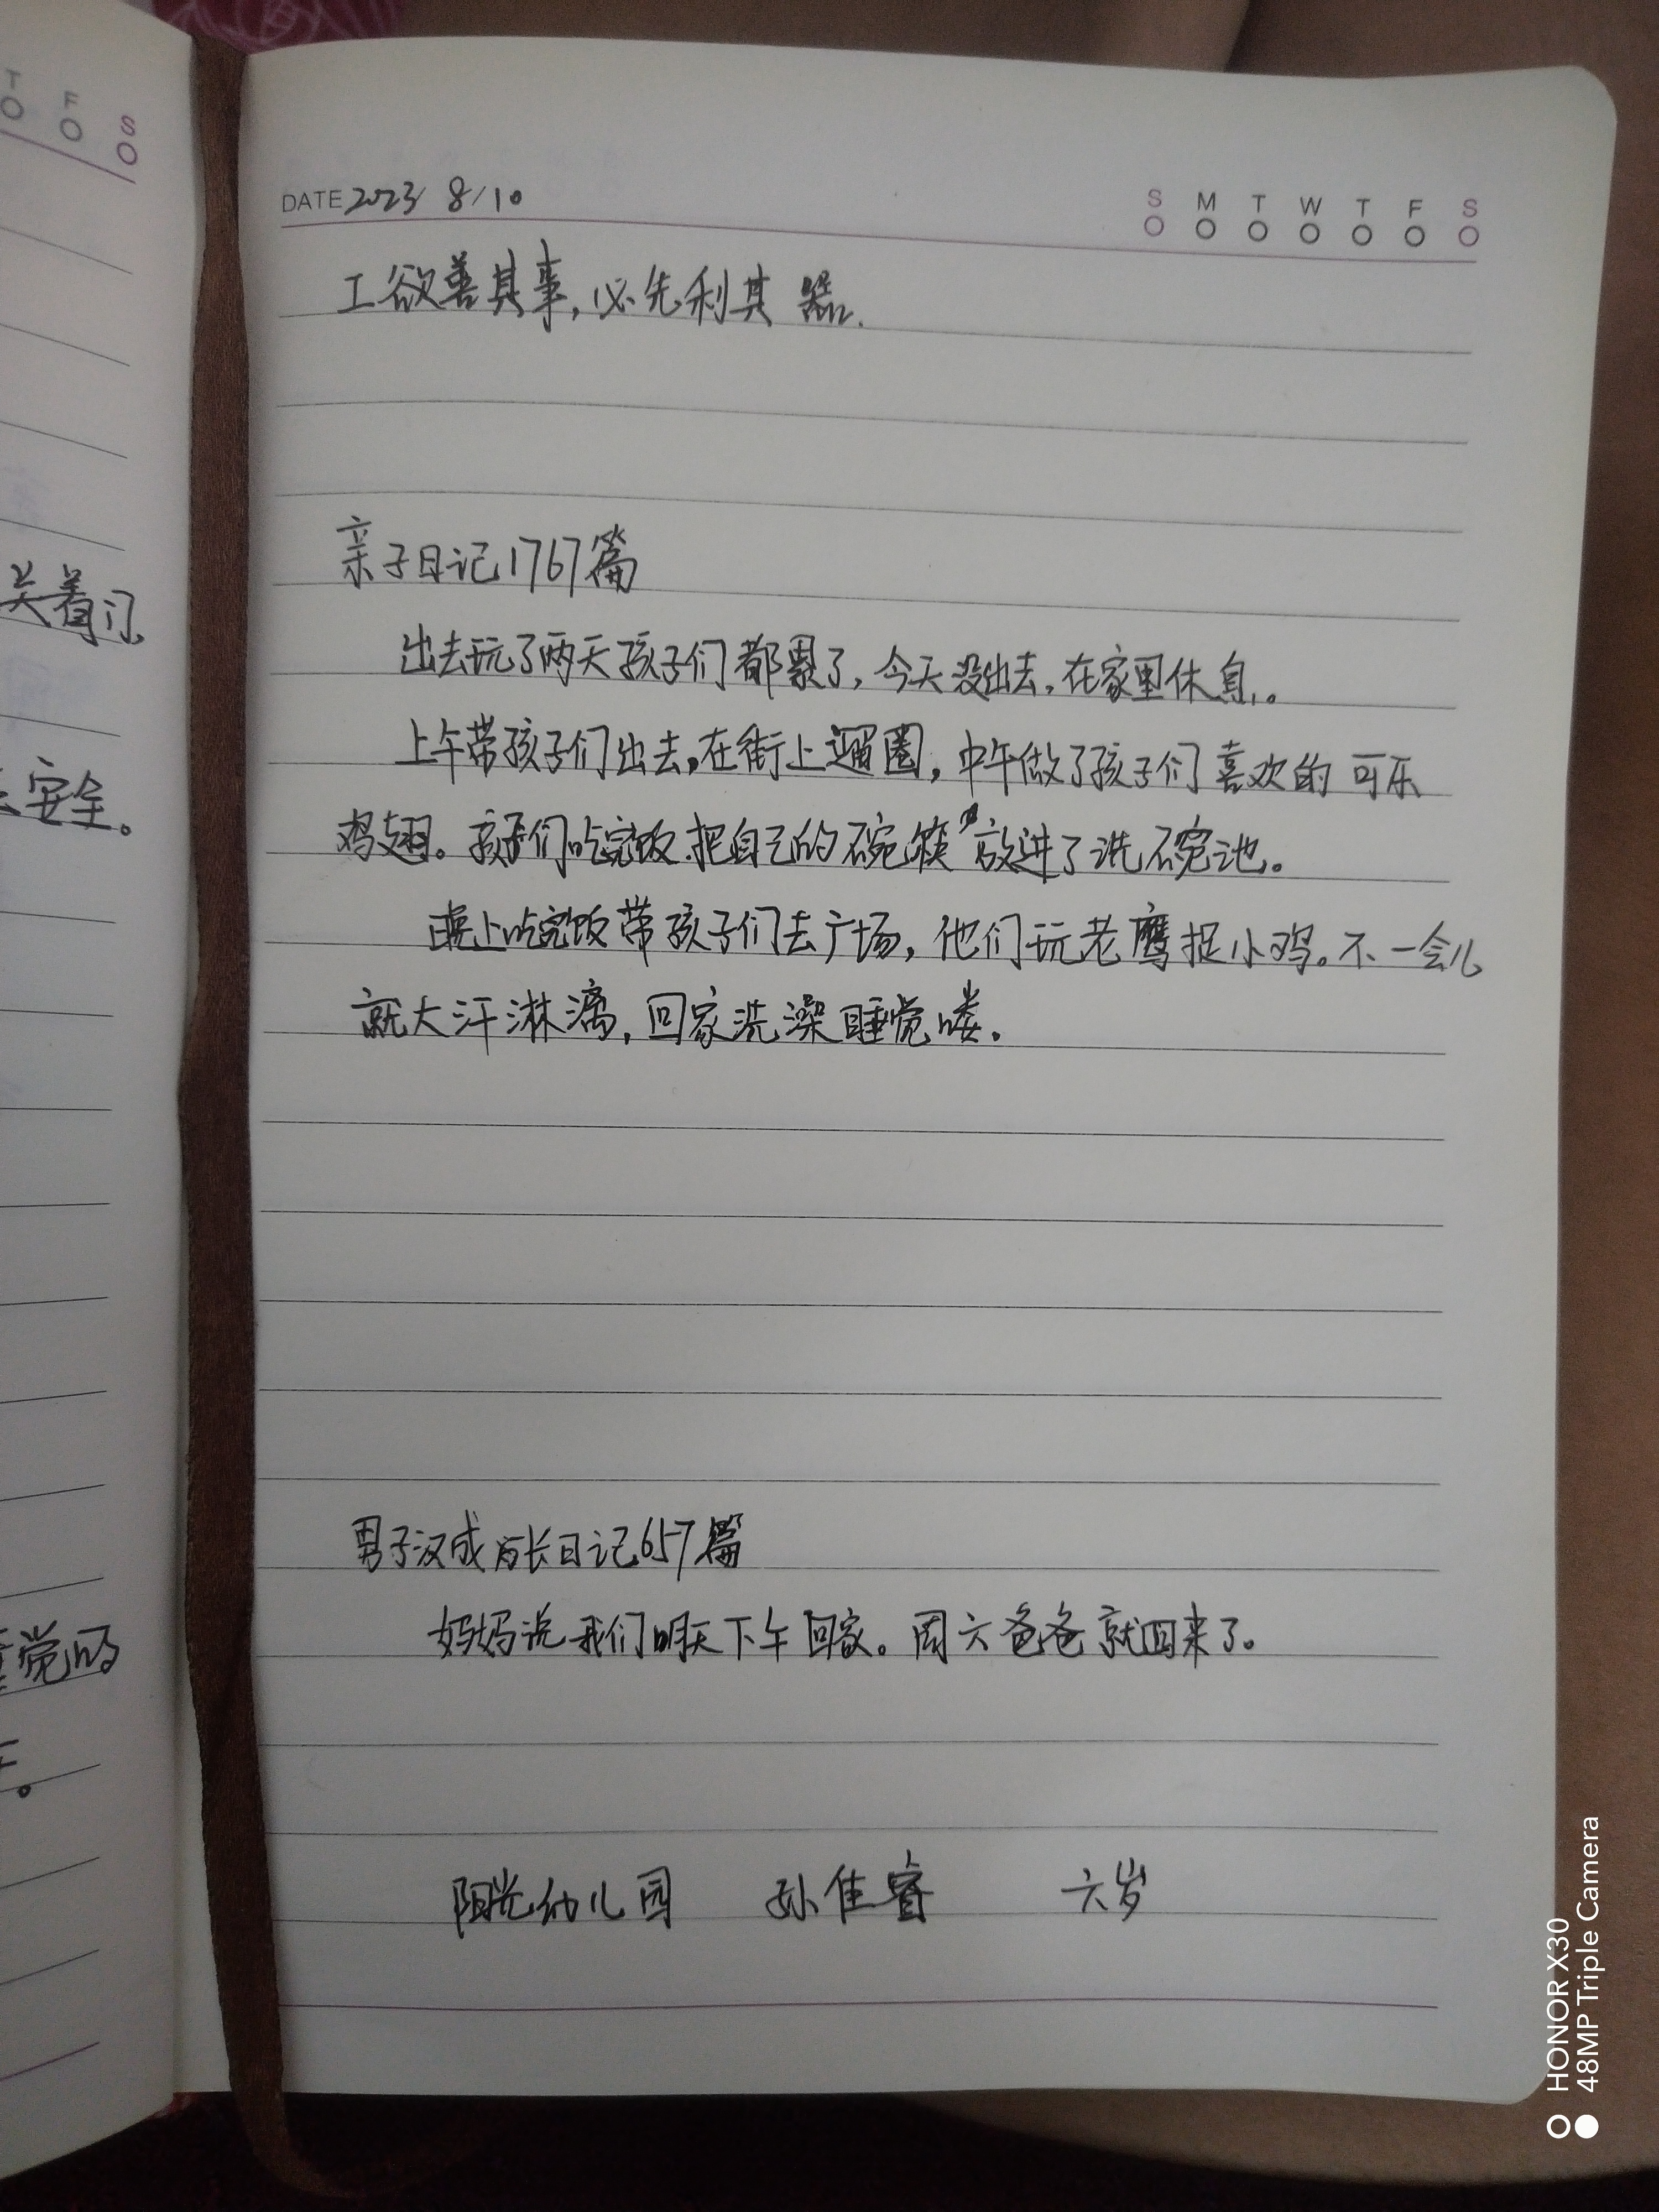 T F S
关着门
安全。
觉的
DATE 2023 8/10
S M T W T F S
工欲善其事,必先利其器.
亲子日记1767篇
出去玩了两天孩子们都累了,今天没出去,在家里休息。
上午带孩子们出去,在街上遛圈,中午做了孩子们喜欢的可乐
鸡翅。孩子们吃完饭把自己的碗筷放进了洗碗池。
晚上吃完饭带孩子们去广场,他们玩老鹰捉小鸡。不一会儿
就大汗淋漓,回家洗澡睡觉喽。
男子汉成长日记657篇
妈妈说我们明天下午回家。周六爸爸就回来了。
阳光幼儿园 孙佳睿 六岁
HONOR X30
48MP Triple Camera